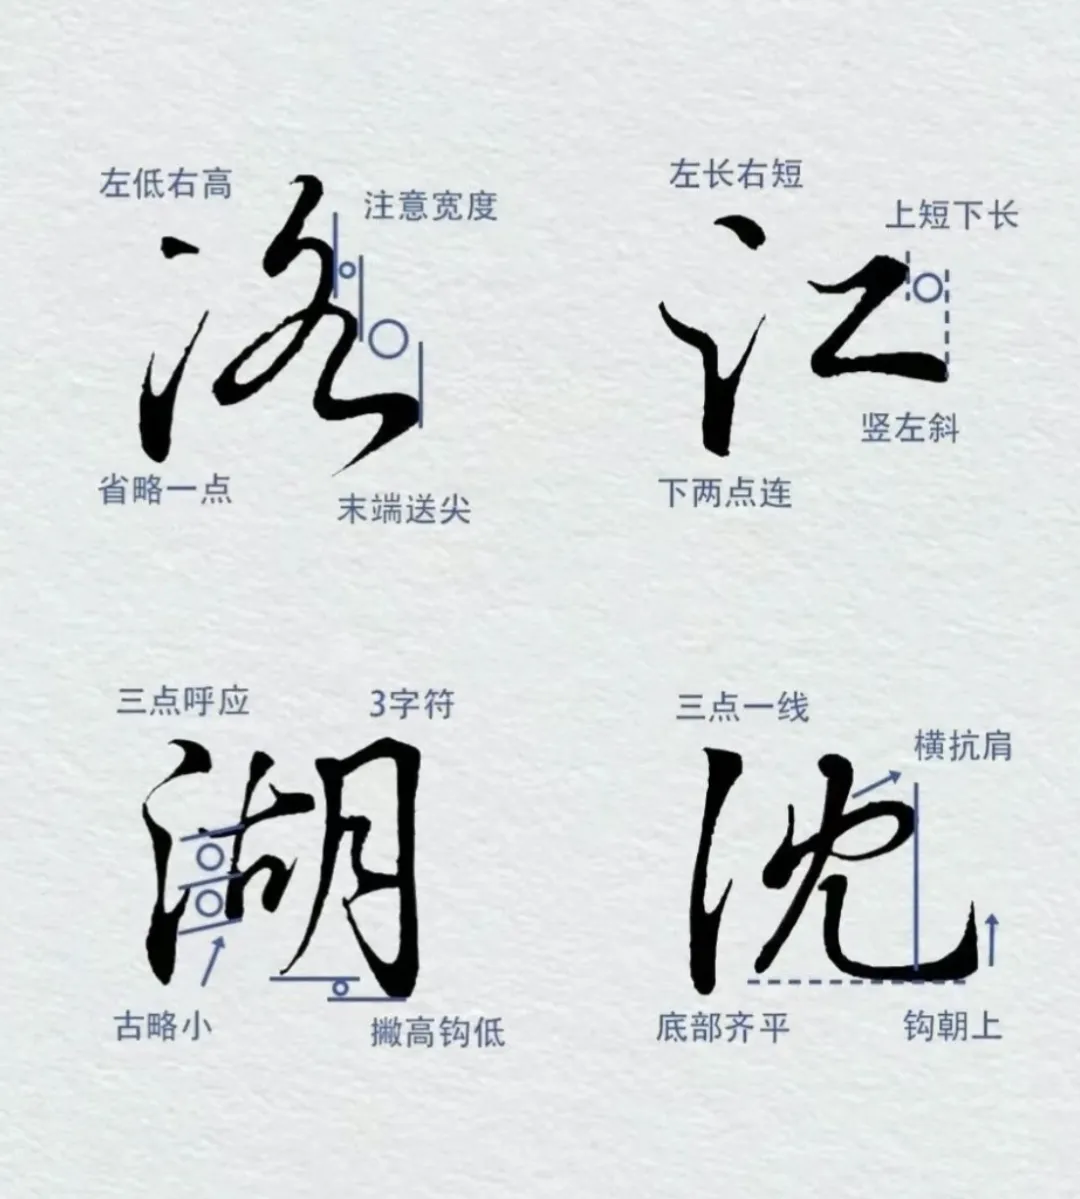 左低右高
注意宽度
洛
省略一点
末端送尖
左长右短
上短下长
江
竖左斜
下两点连
三点呼应
3字符
湖
古略小
撇高钩低
三点一线
横抗肩
沈
底部齐平
钩朝上